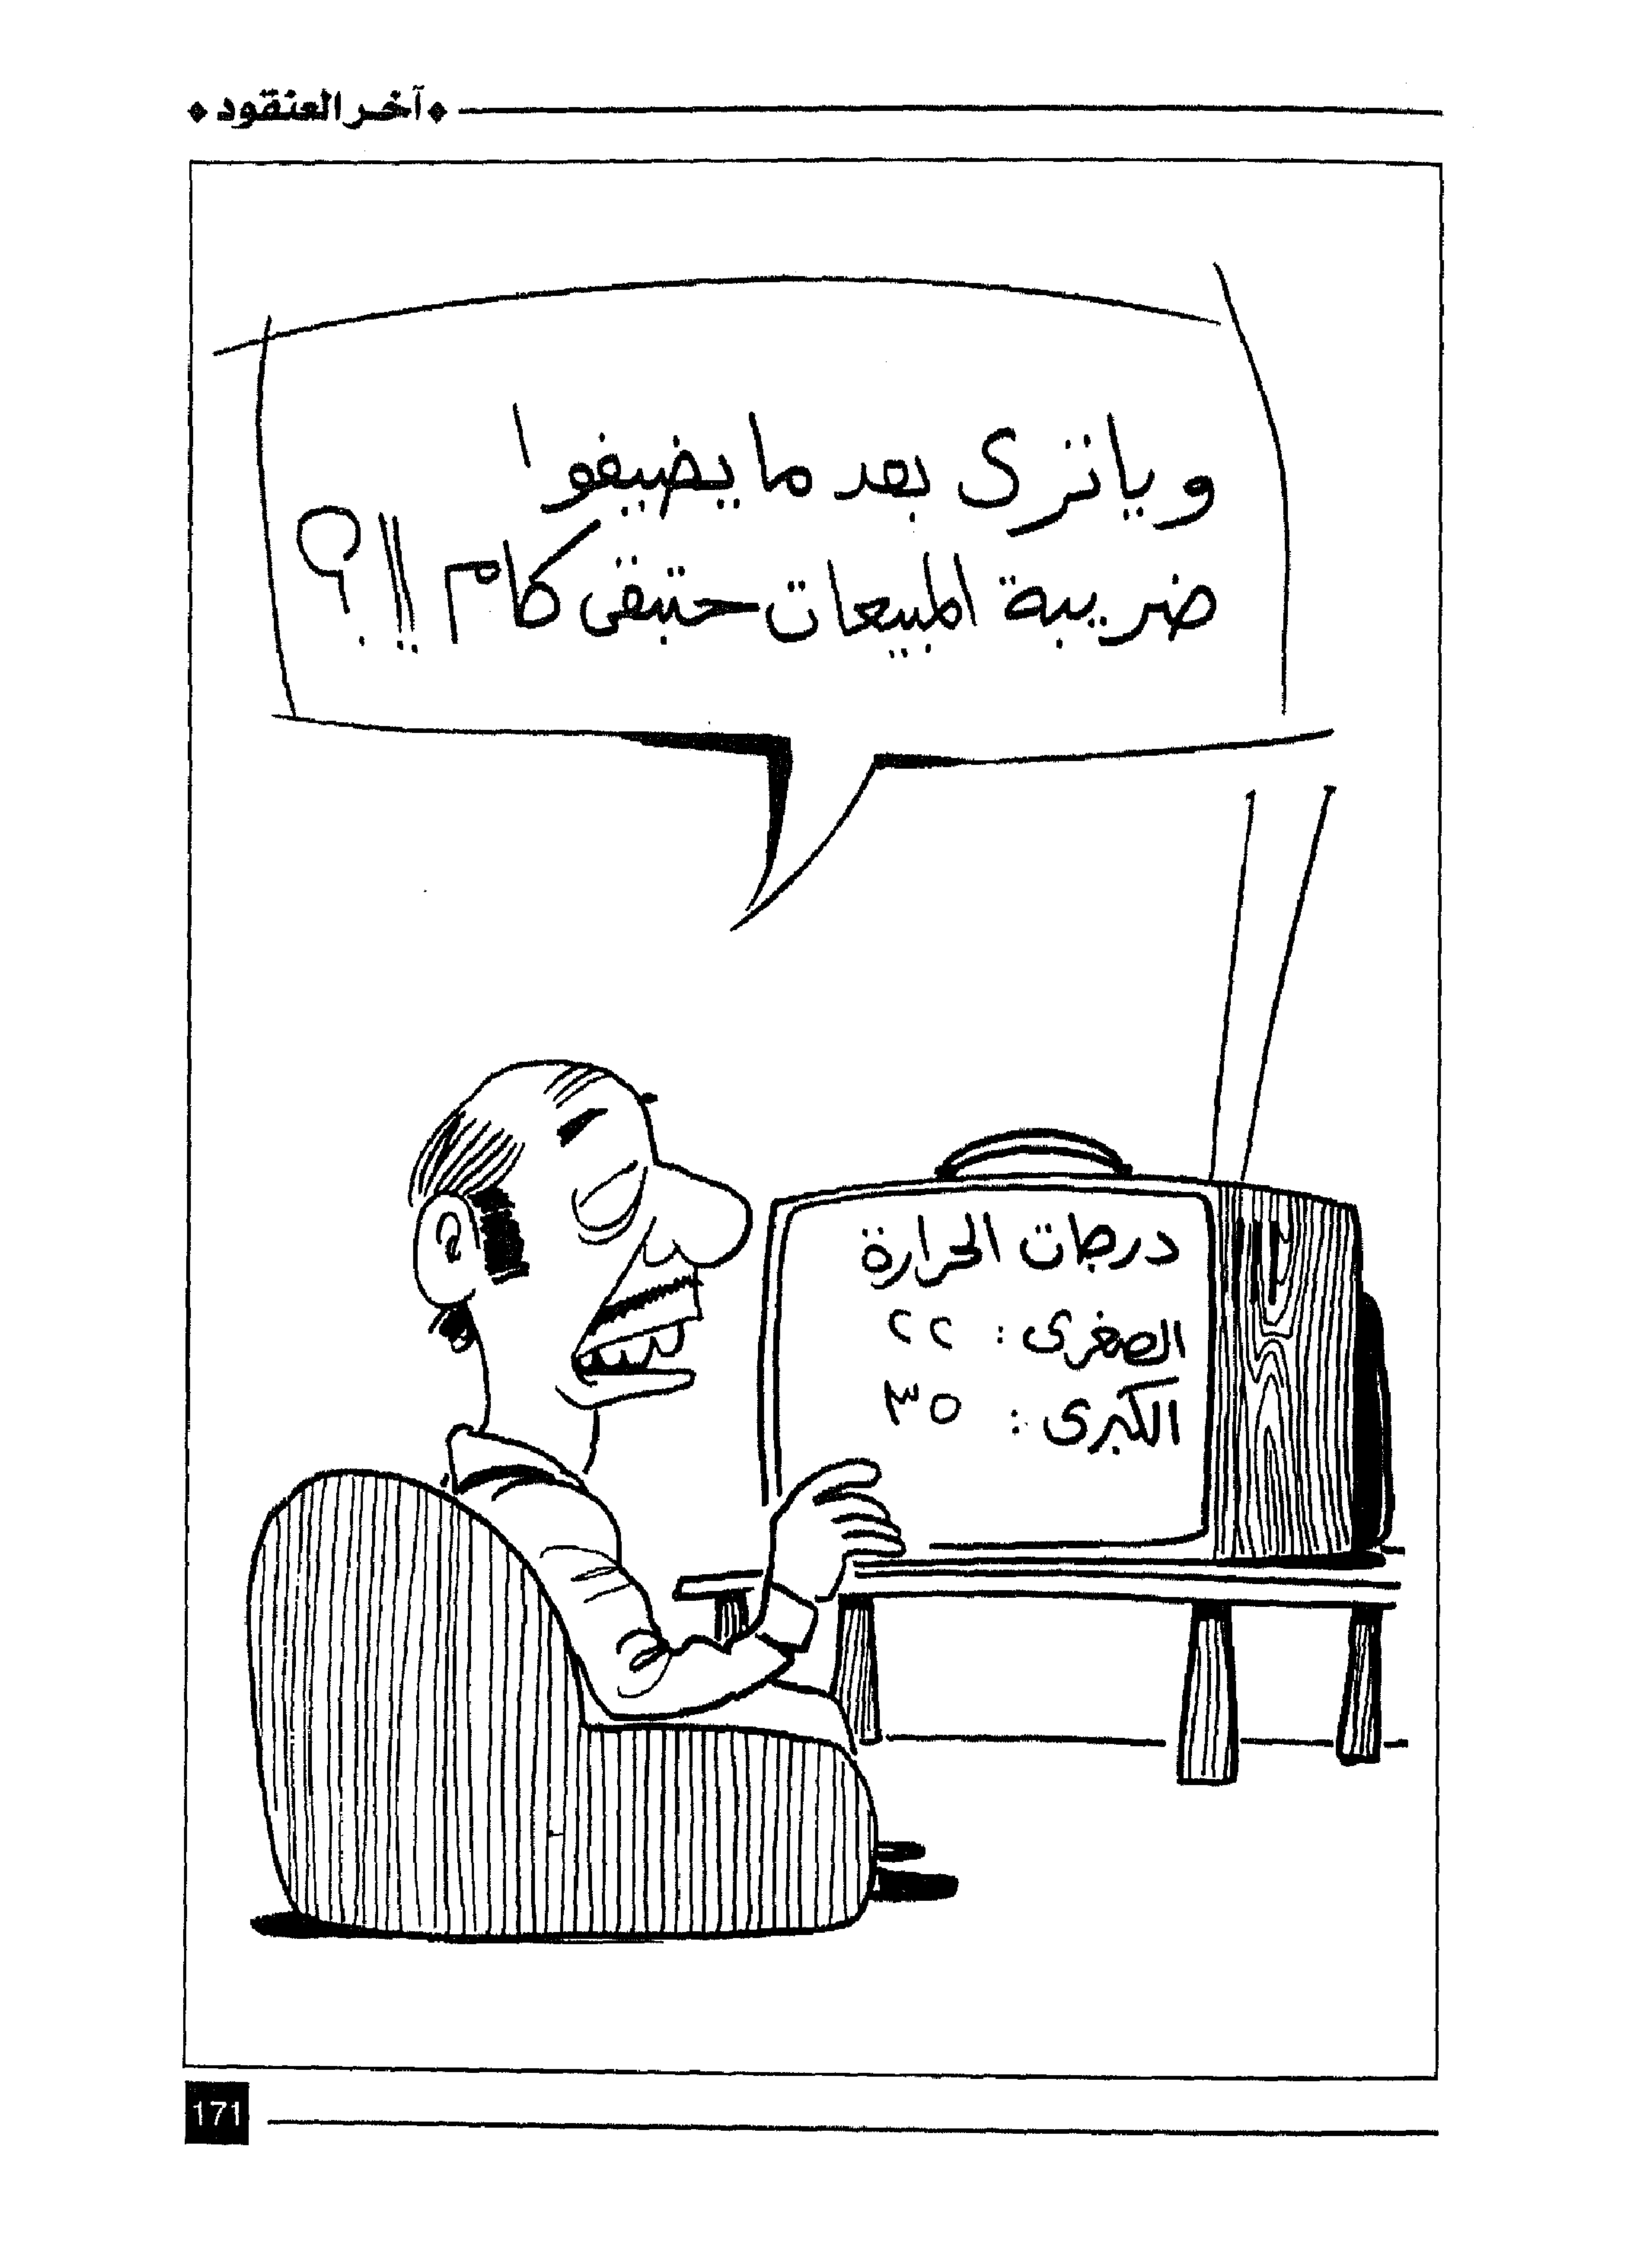 آخر العنقود
ويا ترى بعد ما يضيفوا
ضريبة المبيعات حتبقى كام !!؟
درجات الحرارة
الصغرى : ٢٢
الكبرى : ٣٥
171